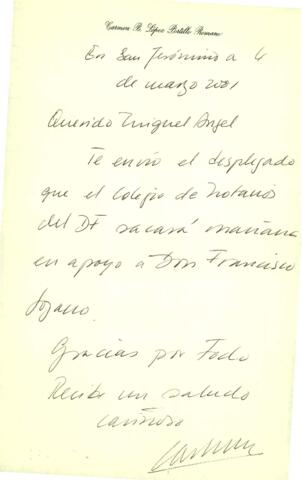 Carmen B. López Portillo Romano
En San Jerónimo a 4
de marzo 2001
Querido Miguel Angel
Te envío el desplegado
que el Colegio de Notarios
del DF sacará mañana
en apoyo a Don Francisco
Lozano.
Gracias por Todo
Recibe un saludo
cariñoso
Carmen